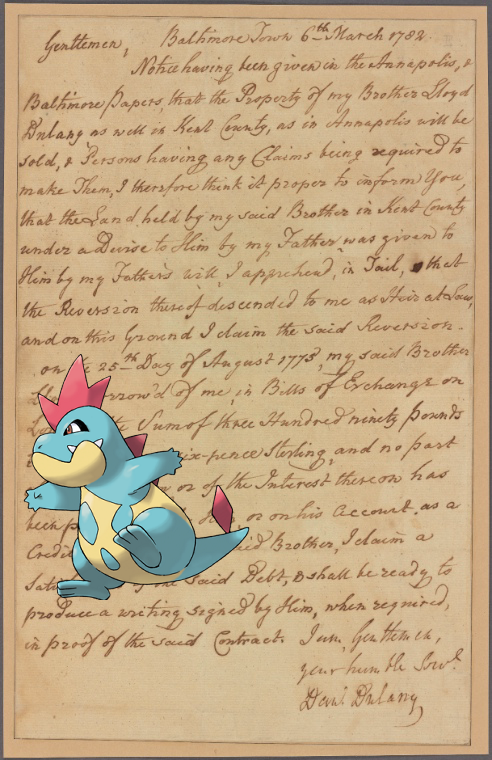 Gentlemen, Baltimore Town 6th March 1782.
Notice having been given in the Annapolis, &
Baltimore Papers, that the Property of my Brother Lloyd
Dulany as well in Kent County, as in Annapolis will be
sold, & Persons having any Claims being required to
make Them, I therefore think it proper to inform You,
that the Land held by my said Brother in Kent County
under a Devise to Him by my Father, was given to
Him by my Father's will, I apprehend, in Tail, that
the Reversion thereof descended to me as Heir at Law,
and on this Ground I claim the said Reversion.
on 25th Day of August 1775, my said Brother
of me, in Bills of Exchange on
Sum of three Hundred ninety pounds
six-pence Sterling, and no part
or of the Interest thereon has
been or on his Account. as a
Credit Brother, I claim a
the said Debt, & shall be ready to
produce a writing signed by Him, when required,
in proof of the said Contract. I am, Gentlemen,
your humble Servt.
Danl Dulany